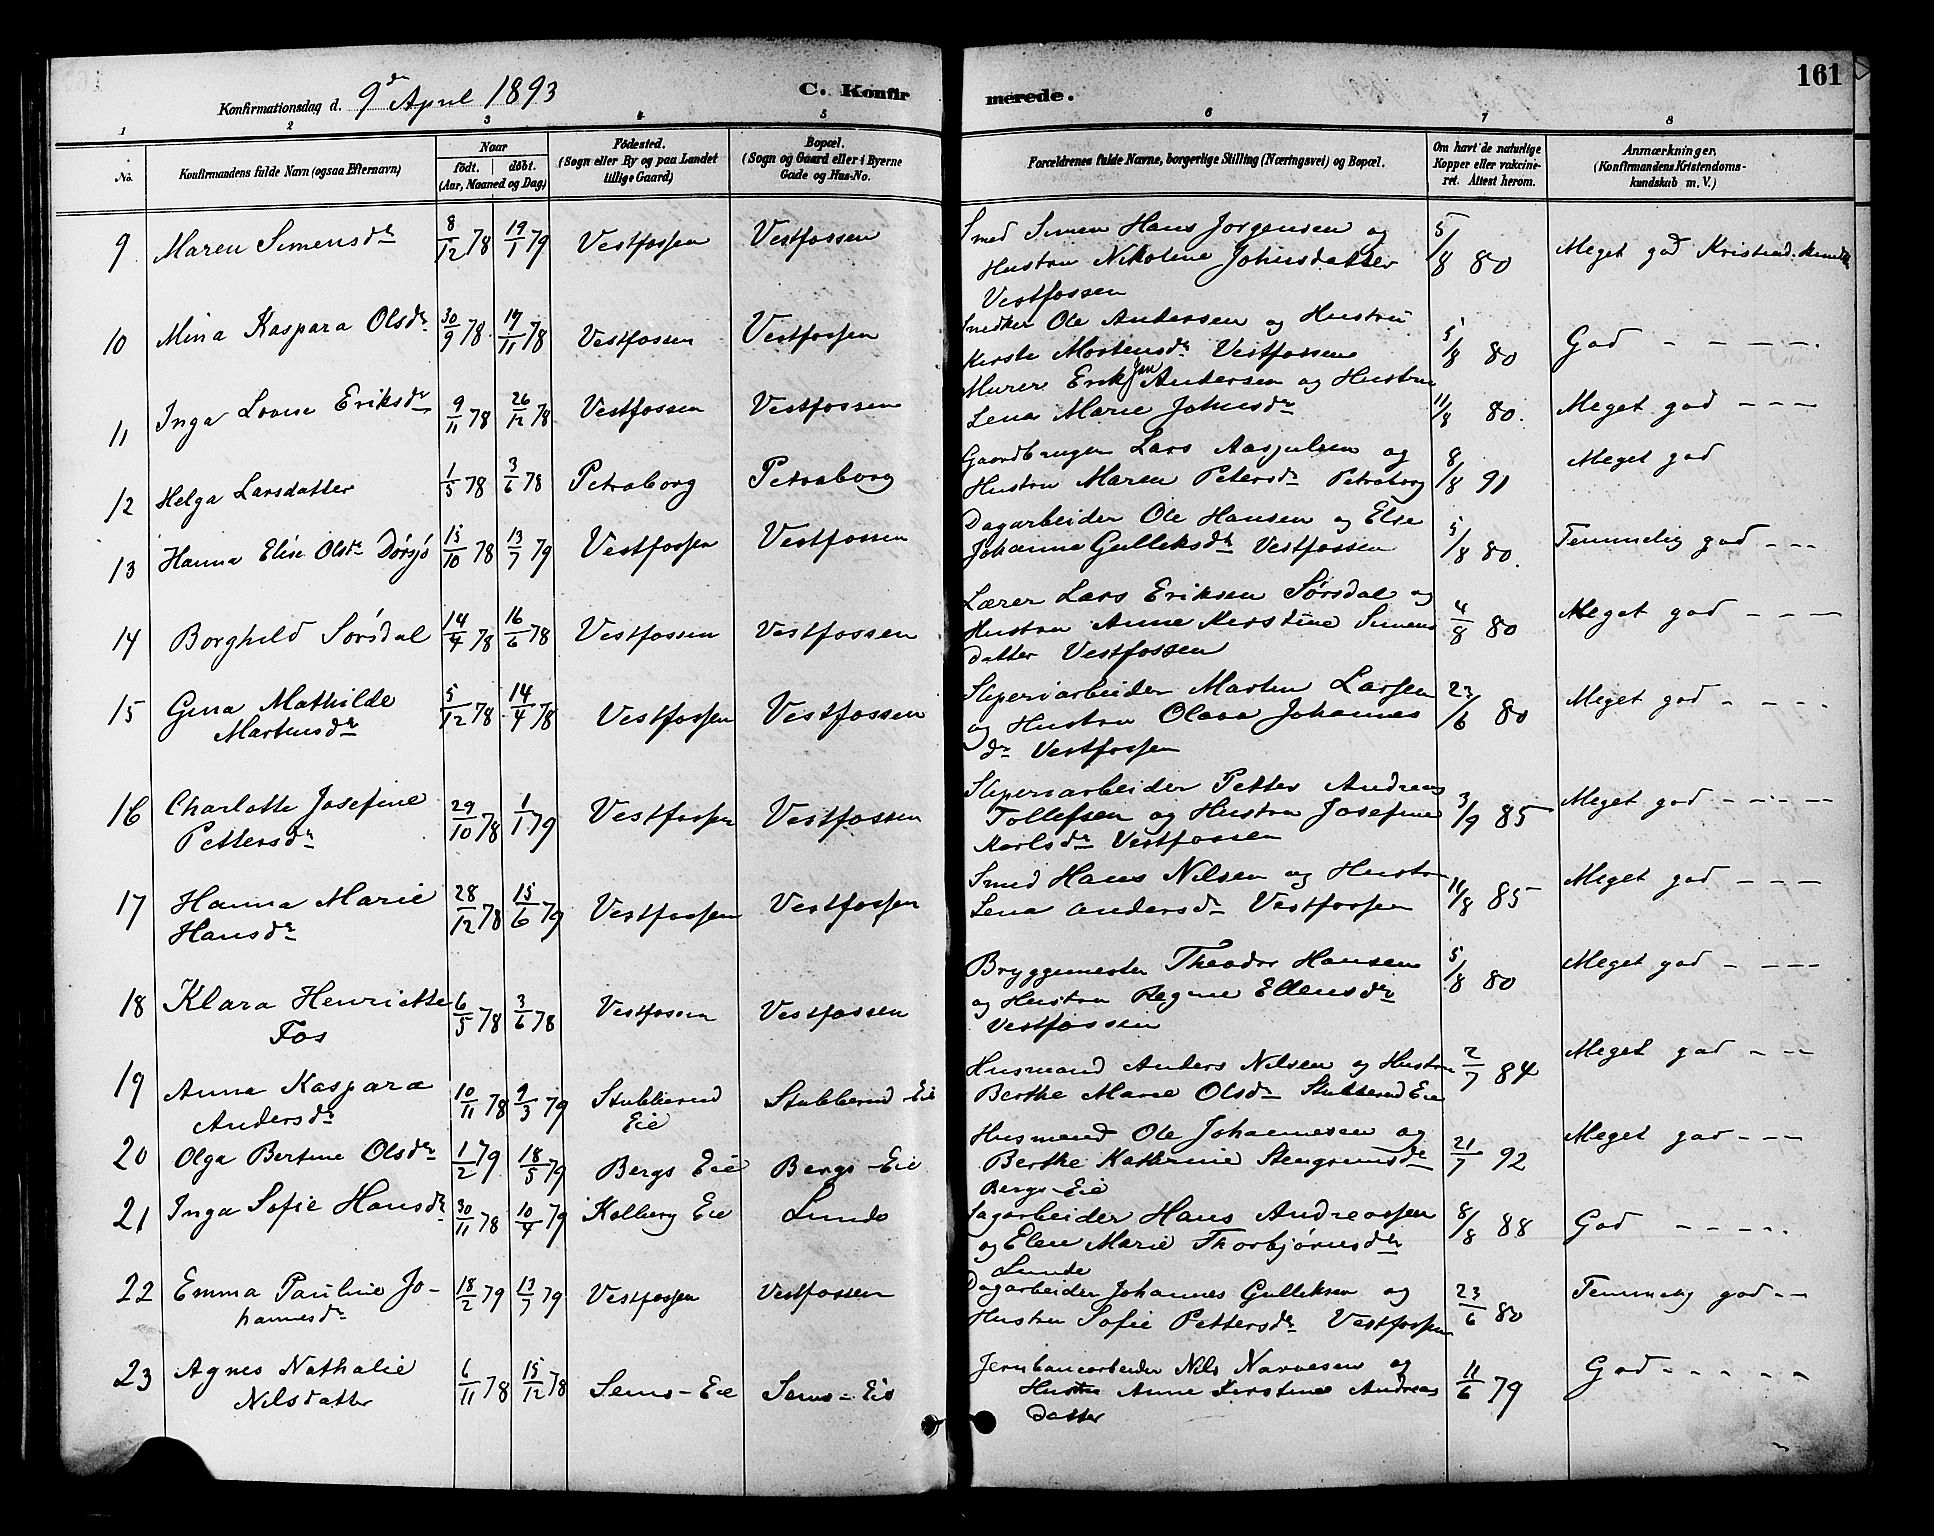 161
Konfirmationsdag d. 9de April 1893 C. Konfirmerede.
1 2 3 4 5 6 7 8
No. Konfirmandens fulde Navn (ogsaa Efternavn) Naar født. døbt. (Aar, Maaned og Dag) Fødested. (Sogn eller By og paa Landet tillige Gaard) Bopæl. (Sogn og Gaard eller i Byerne Gade og Hus-No. Forældrenes fulde Navne, borgerlige Stilling (Næringsvei) og Bopæl. Om havt de naturlige Kopper eller vaccineret. Attest herom. Anmærkninger, (Konfirmandens Kristendomskundskab m. V.)
9 Maren Simensdr 8/12 78 19/1 79 Vestfossen Vestfossen Smed Simen Hans Jorgensen og 5/8 80 Meget god Kristend.
Hustru Nikoline Johnsdatter
Vestfossen
10 Mina Kaspara Olsdr 30/9 78 17/11 78 Vestfossen Vestfossen Snedker Ole Andersen og Hustru 5/8 80 God - - - -.
Kirste Mortensdr Vestfossen
11 Inga Lovise Eriksdr 9/11 78 26/12 78 Vestfossen Vestfossen Murer Erik Jan Andersen og Hustru 11/8 80. Meget god - - -
Lena Marie Johnsdr
12 Helga Larsdatter 1/5 78 3/6 78 Petraborg Petraborg Gaardbruger Lars Aaspulsen og 8/8 91 Meget god
Hustru Maren Petersdr Petraborg
13 Hanna Elise Olsdr Dørsjø 15/10 78 13/7 79 Vestfossen Vestfossen Dagarbeider Ole Hansen og Else 5/8 80. Temmelig god - - -
Johanne Gulleksdr Vestfossen
14 Borghild Sørsdal 14/4 78 16/6 78 Vestfossen Vestfossen Lærer Lars Eriksen Sørsdal og 4/8 80 Meget god - - -
Hustru Anne Kerstine Simens
datter Vestfossen
15 Gina Mathilde 5/12 78 14/4 78 Vestfossen Vestfossen Sliperiarbeider Martin Larsen 23/6 80 Meget god - - - -
Martinsdr og Hustru Olava Johannes
dr Vestfossen
16 Charlotte Josefine 29/10 78 1/1 79 Vestfossen Vestfossen Sliperiarbeider Petter Andreas 3/9 85 Meget god - - - -
Pettersdr Tollefsen og Hustru Josefine
Karlsdr Vestfossen
17 Hanna Marie 28/12 78 15/6 79 Vestfossen Vestfossen Smed Hans Nilsen og Hustru 11/8 85 Meget god - - -
Hansdr Lena Andersdr Vestfossen
18 Klara Henriette 6/5 78 3/6 78 Vestfossen Vestfossen Bryggemester Theodor Hansen 5/8 80 Meget god - - - -
Fos og Hustru Regine Ellensdr
Vestfossen
19 Anna Kaspara 10/11 78 9/3 79 Stubberud Stubberud-Eie Husmand Anders Nilsen og Hustru 2/7 84 Meget god - - -
Andersdr Eie Berthe Marie Olsdr Stubberud Eie
20 Olga Bertine Olsdr 1/2 79 18/5 79 Bergs Eie Bergs-Eie Husmand Ole Johannesen og 21/7 92 Meget god - - -
Berthe Kathrine Stengrimsdr
Bergs-Eie
21 Inga Sofie Hansdr 30/11 78 10/4 79 Kolberg Eie Lunde Sagarbeider Hans Andreassen 8/8 88 God - - - -.
og Elen Marie Thorbjørnsdr
Lunde
22 Emma Pauline Jo- 18/2 79 13/7 79 Vestfossen Vestfossen Dagarbeider Johannes Gulleksen og 23/6 80 Temmelig god - -
hannesdr Hustru Sofie Pettersdr Vestfossen
23 Agnes Nathalie 6/11 78 15/12 78 Sems-Eie Sems-Eie Jernbanearbeider Nils Narvesen og 11/6 79 God - - - - -
Nilsdatter Hustru Anne Kerstine Andreas
datter